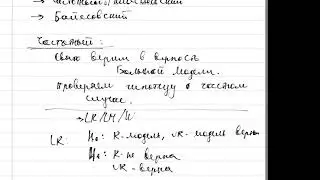 → Байесовский
Частотный:
Свято верим в верность
большой модели.
Проверяем гипотезу о частном
случае.
→ LR/LM/W
LR: H₀: R-модель, UR-модель верны
R-не верна
UR-верна